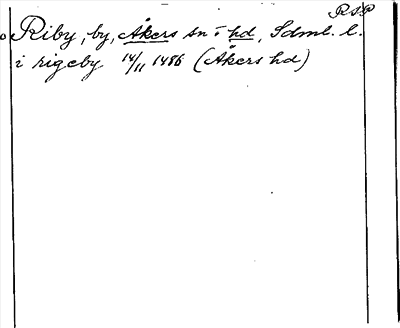 RSP
Riby, by, Åkers sn o hd, Sdml. l.
i rigeby 14/11 1486 (Åkers hd)